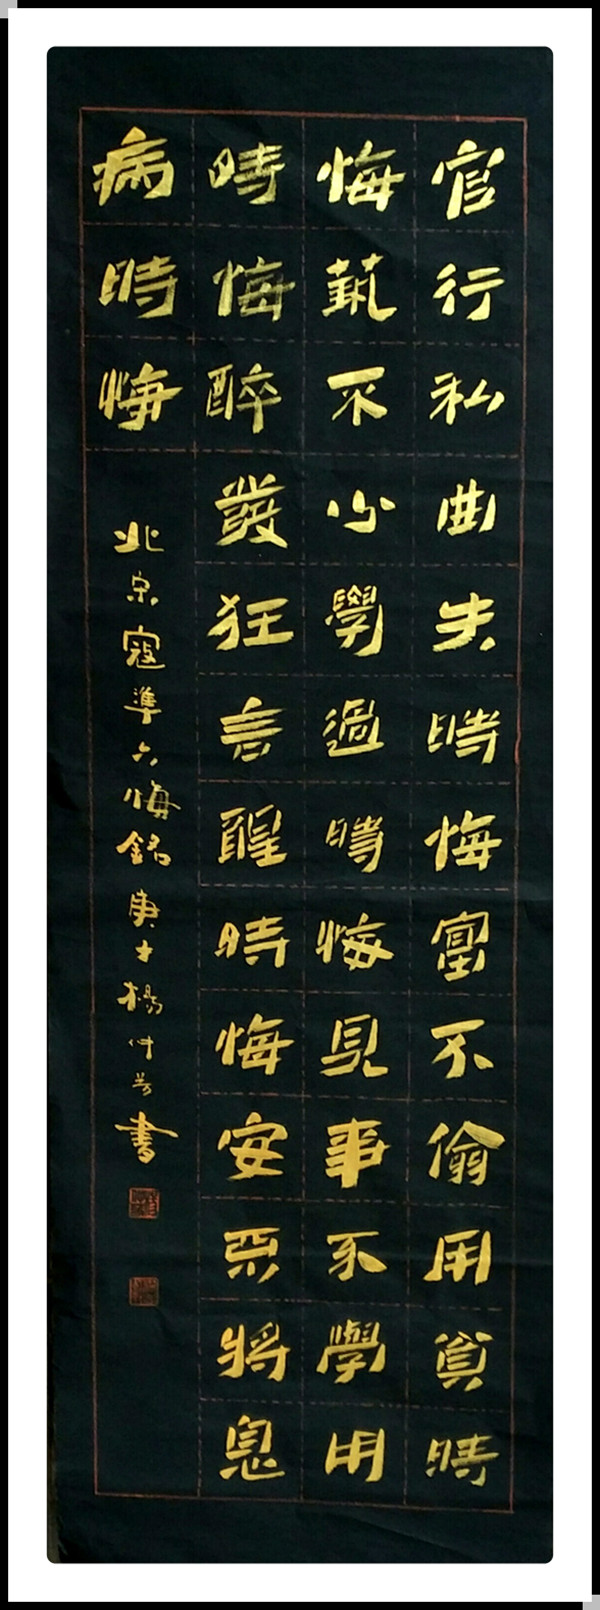 官行私曲失時悔富不偷用貧時
悔藝不少學過時悔見事不學用
時悔醉發狂言醒時悔安不將息
病時悔
北宋寇準六悔銘庚子楊付芳書